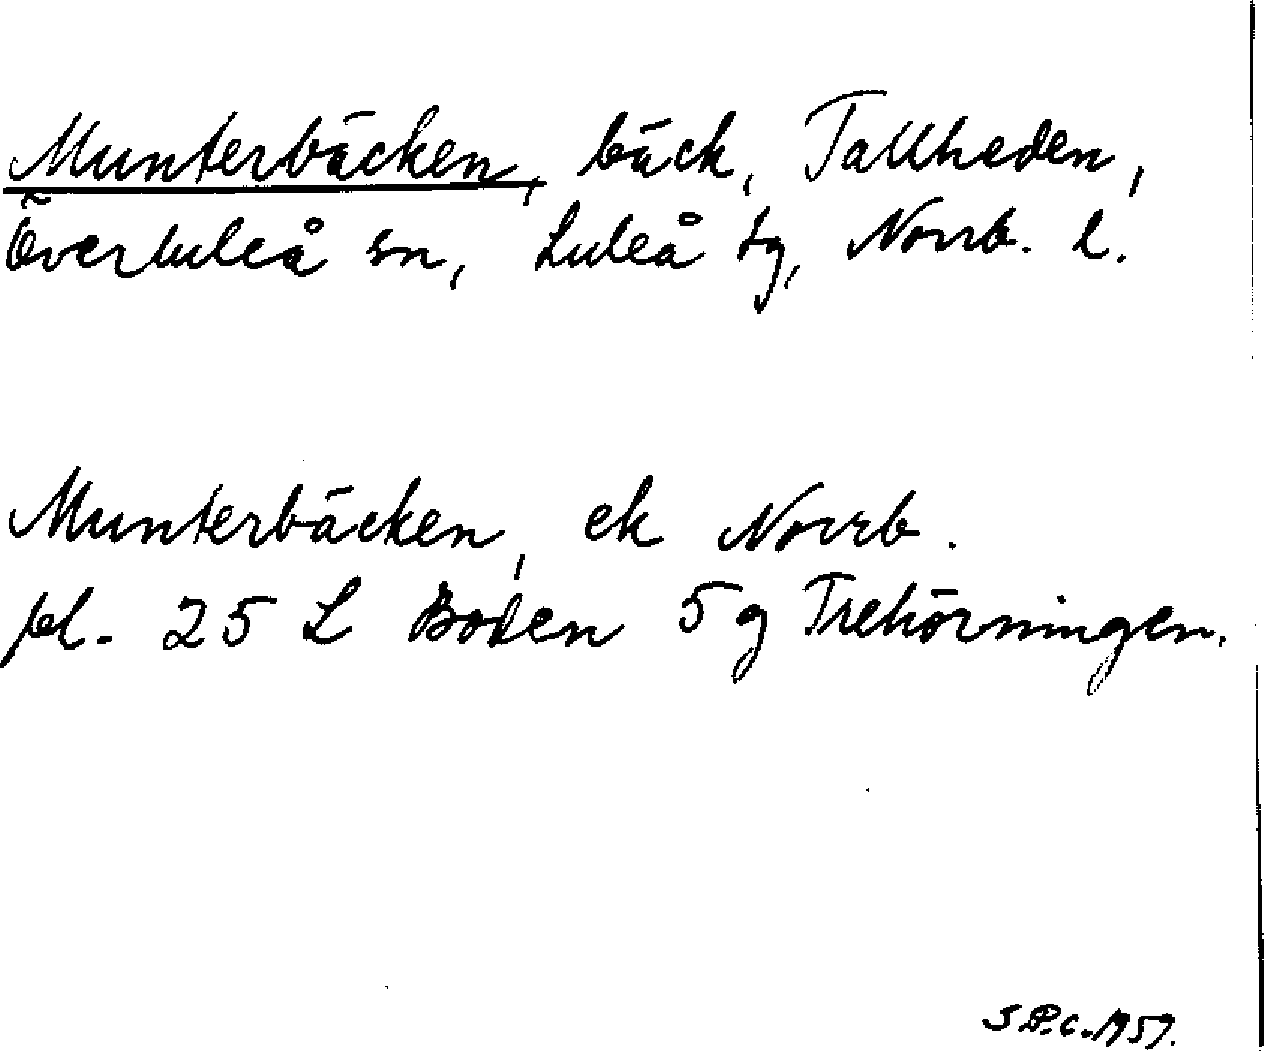 Munterbäcken, bäck, Tallheden,
Överluleå sn, Luleå tg, Norrb. l.
Munterbäcken, ek Norrb.
pl. 25 L Boden 5 g Trehörningen.
S.P.C. 1959.